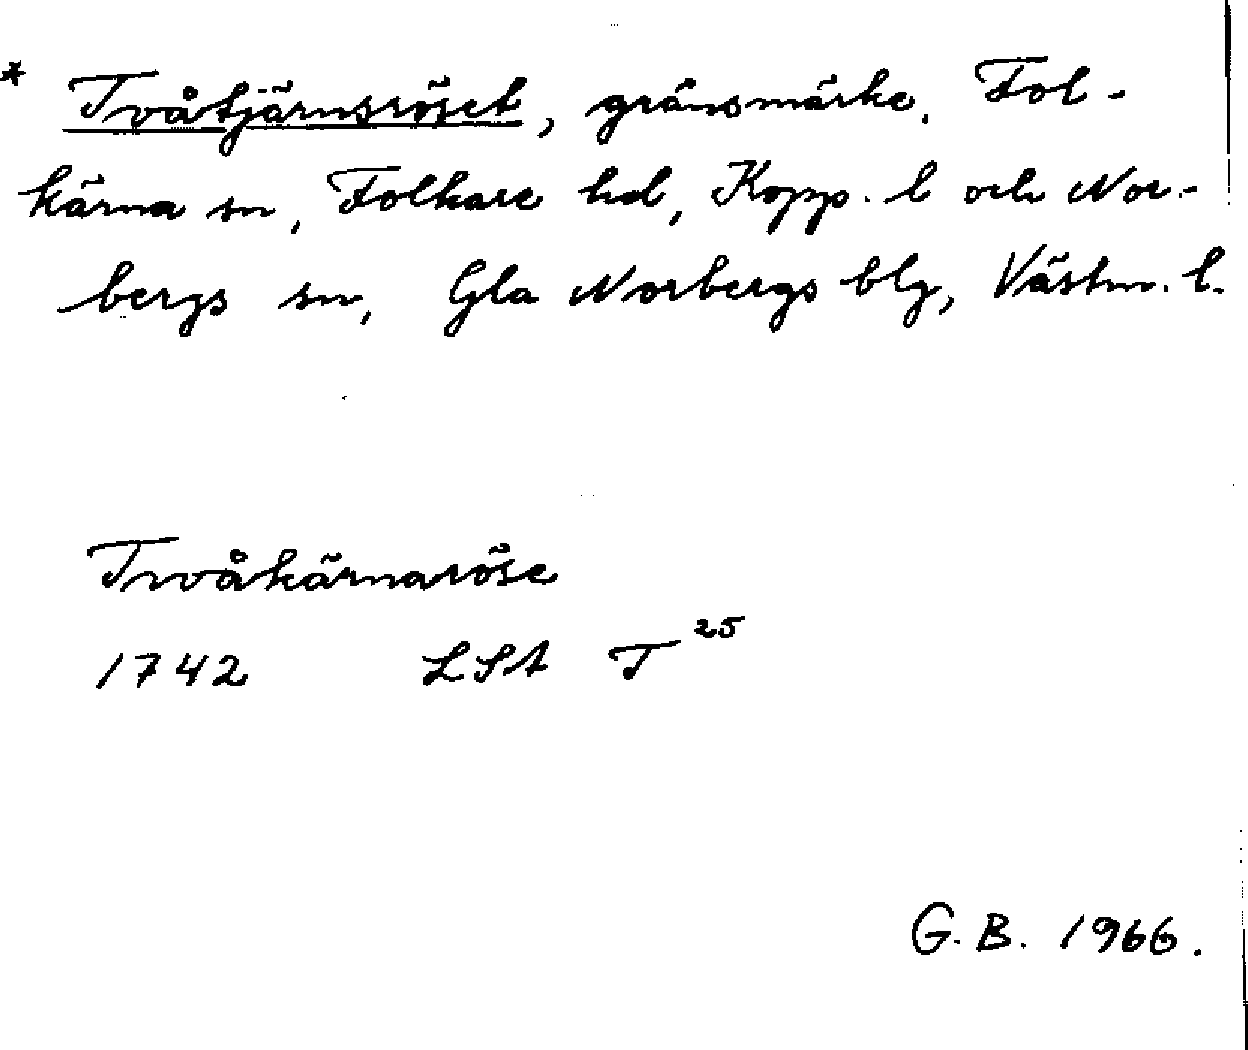 * Tvåtjärnsröset, gränsmärke, Fol-
kärna sn, Folkare hd, Kopp. l och Nor-
bergs sn, Gla Norbergs blg, Västm. l.
Twåkärnaröse
1742 LSA T 25
G. B. 1966.